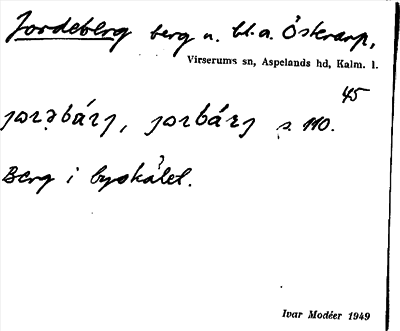 Jordeberg berg n. bl.a. Österarp,
Virserums sn, Aspelands hd, Kalm. l.
45
s. 110.
Berg i byskälet.
Ivar Modéer 1949